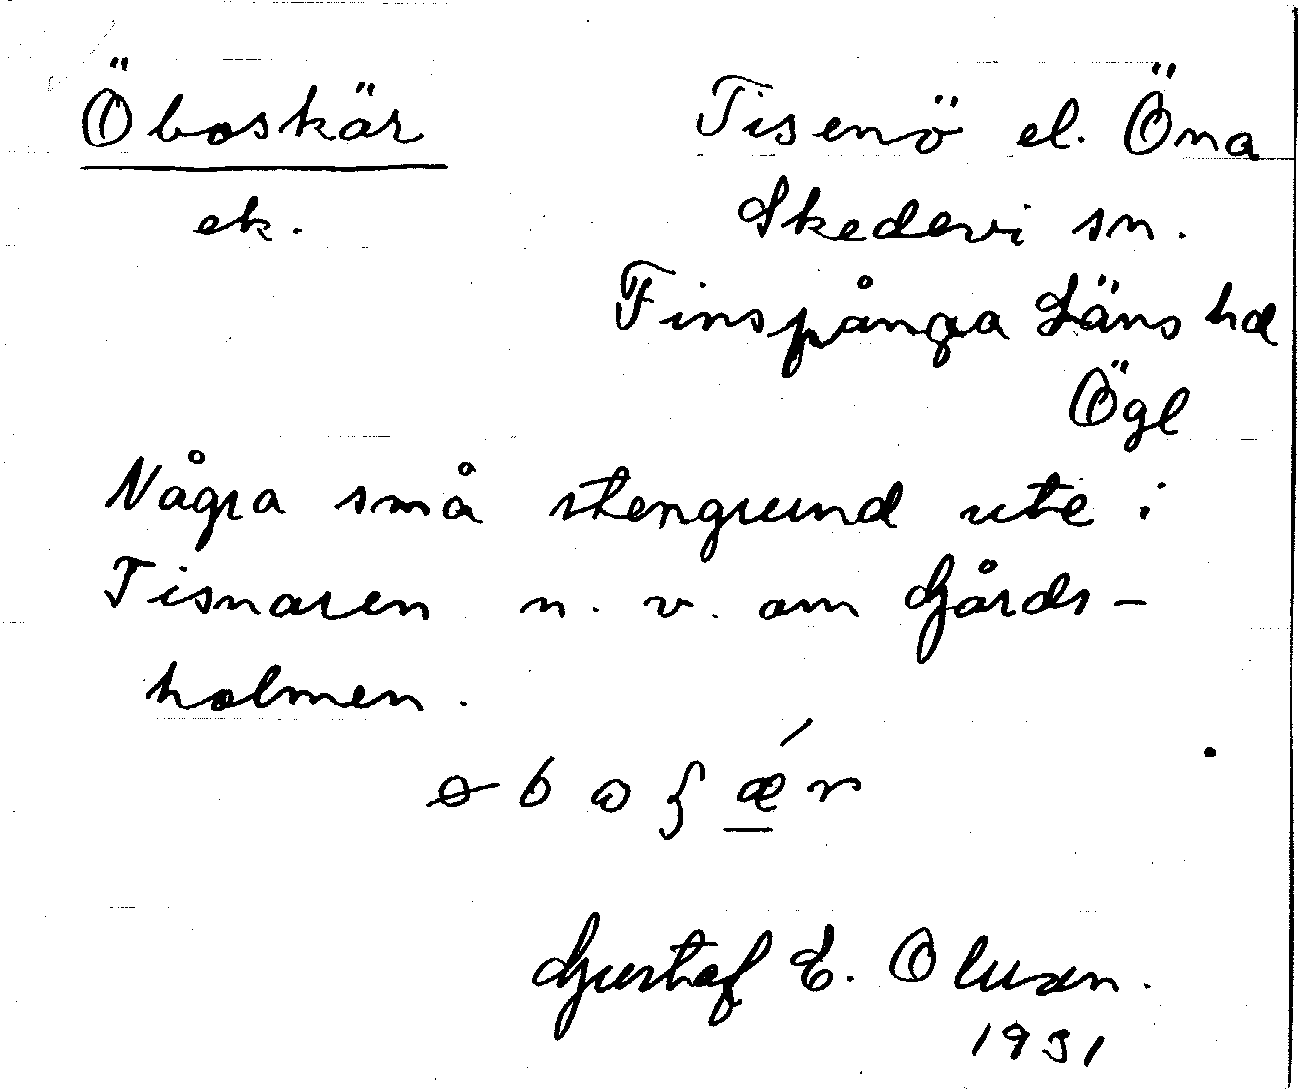 Öboskär
ek.
Tisenö el. Öna
Skedevi sn.
Finspånga Läns hd
Ögl
Några små stengrund ute i
Tisnaren n. v. om Gårds-
holmen.
Gustaf E. Olsson.
1931